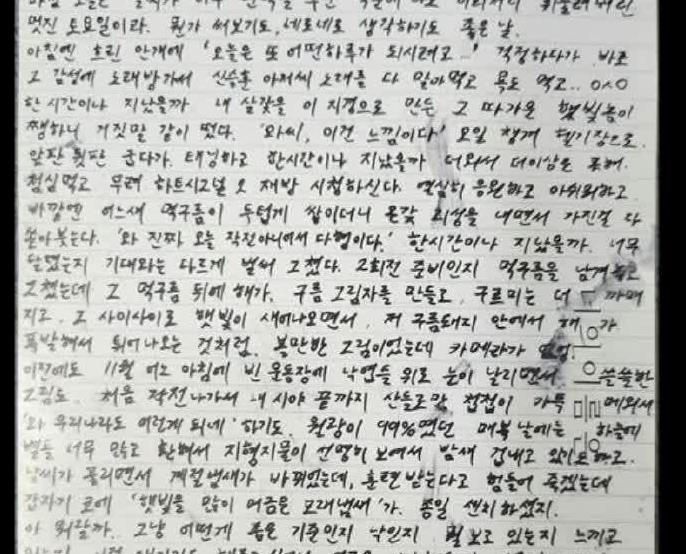 멋진 토요일이라. 뭔가 써보기도, 네로네로 생각하기도 좋은 날.
아침엔 흐린 안개에 '오늘은 또 어떤하루가 되시려고...' 걱정하다가 바로
그 감성에 노래방가서 신승훈 아저씨 노래를 다 말아먹고 욕도 먹고.. ㅇㅅㅇ
한시간이나 지났을까 내 살갗을 이 지경으로 만든 그 따가운 햇빛놈이
쨍하니 거짓말 같이 떴다. '와씨, 이건 느낌이다' 오일 챙겨 헬기장으로.
앞판 뒷판 굽다가. 태닝하고 한시간이나 지났을까 더워서 더이상은 못해.
점심먹고 무려 하트시그널 오 재방 시청하신다. 열심히 응원하고 아쉬워하고.
바깥엔 어느새 먹구름이 두텁게 쌓이더니 온갖 괴성을 내면서 가진걸 다
쏟아붓는다. '와 진짜 오늘 작전아니여서 다행이다.' 한시간이나 지났을까. 너무
달렸는지 기대와는 다르게 벌써 그쳤다. 2회전 준비인지 먹구름을 남겨놓고
그쳤는데 그 먹구름 뒤에 해가. 구름 그림자를 만들고, 구르미는 더 까매
지고. 그 사이사이로 햇빛이 새어나오면서, 저 구름돼지 안에서 해가
폭발해서 튀어나오는 것처럼. 볼만한 그림이었는데 카메라가 없엉.
이전에도 11월 어느 아침에 빈 운동장에 낙엽들 위로 눈이 날리면서 쓸쓸한
그림도. 처음 작전나가서 내 시야 끝까지 산들로만 첩첩이 가득 메워서
'와 우리나라도 이렇게 되네' 하기도. 월광이 99%였던 매복날에는 하늘에
별들 너무 많고 환해서 지형지물이 선명히 보여서 밤새 겁내고 있기도 하고.
날씨가 풀리면서 계절냄새가 바뀌었는데, 훈련받는다고 힘들어 죽겠는데
갑자기 코에 '햇빛을 많이 머금은 모래냄새'가. 종일 센치하셨지.
아 뭐랄까. 그냥 어떻게 좁은 기준인지 낙인지 뭘 보고 있는지 느끼고